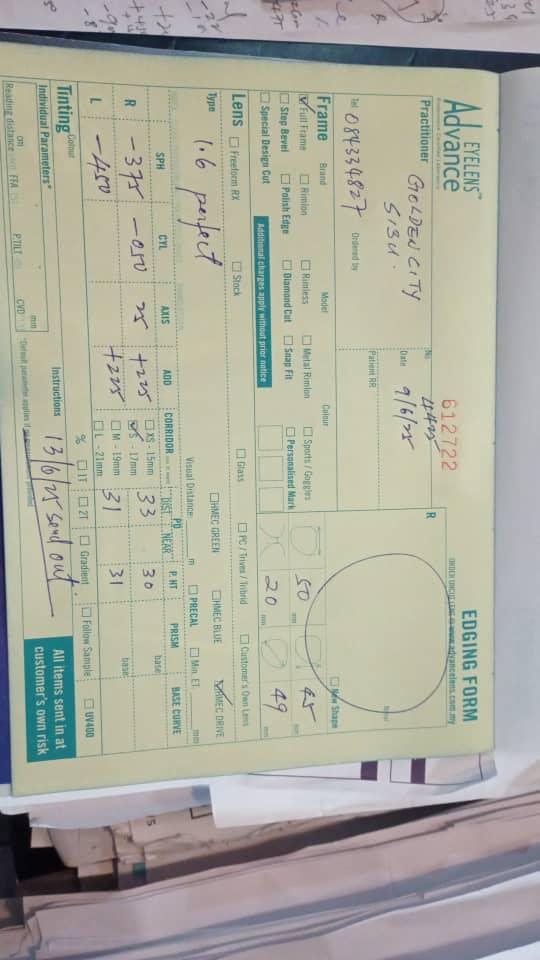 EYELENS™
Advance
EDGING FORM
ORDER ONLINE LENS @ www.advancelens.com.my
612722
Practitioner GOLDEN CITY
SIBU.
No.
Date 9/6/25
Patient RR
Tel 084334827 Ordered by
R
Nasal
Frame Brand Model Colour
Full Frame Rimlon Rimless Metal Rimlon Sports / Goggles
Step Bevel Polish Edge Diamond Cut Snap Fit Personalised Mark
Special Design Cut Additional charges apply without prior notice
New Shape
50 mm 45 mm
20 mm 49 mm
Lens Freeform RX Stock Glass PC / Trivex / Tribrid Customer's Own Lens
Type 1.6 perfect
HMEC GREEN HMEC BLUE HMEC DRIVE
Visual Distance: m PRECAL Min. ET: mm
SPH CYL AXIS ADD CORRIDOR PD DIST NEAR P. HT PRISM BASE CURVE
R -375 -050 25 +225 XS - 15mm S - 17mm 33 30 base:
L -450 +225 M - 19mm L - 21mm 31 31 base:
Tinting Colour % 1T 2T Gradient Follow Sample UV400
Individual Parameters* mm
Instructions 13/6/25 send out.
Reading distance cm FFA PTILT CVD
All items sent in at
customer's own risk